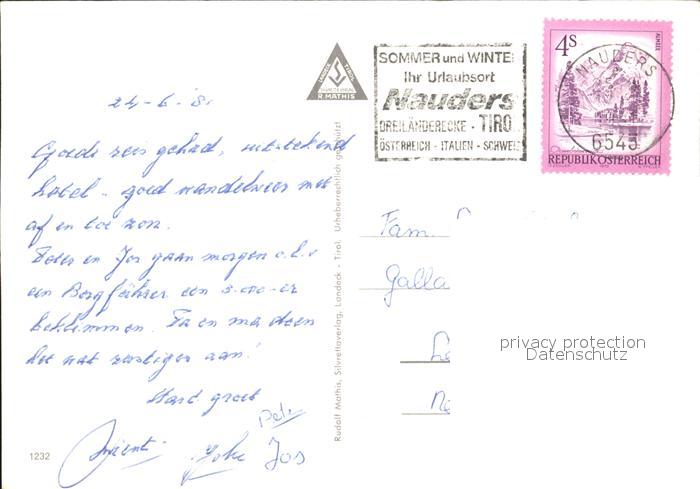 SOMMER und WINTE
Ihr Urlaubsort
Nauders
DREILÄNDERECKE - TIRO
ÖSTERREICH - ITALIEN - SCHWEI
4S
ALMSEE
NAUDERS
6543
REPUBLIK ÖSTERREICH
R. MATHIS
24-6-'8
Goede reis gehad, uitstekend
hotel - goed wandelweer met
af en toe zon.
Peter en Jos gaan morgen o.l.v
een Bergführer een 3.000-er
beklimmen. Pa en ma doen
het wat rustiger aan!
Hart. groet
Peter
Joke Jos
Fam.
Galla
Le
Ne
privacy protection
Datenschutz
Rudolf Mathis, Silvrettaverlag, Landeck - Tirol. Urheberrechtlich geschützt
1232